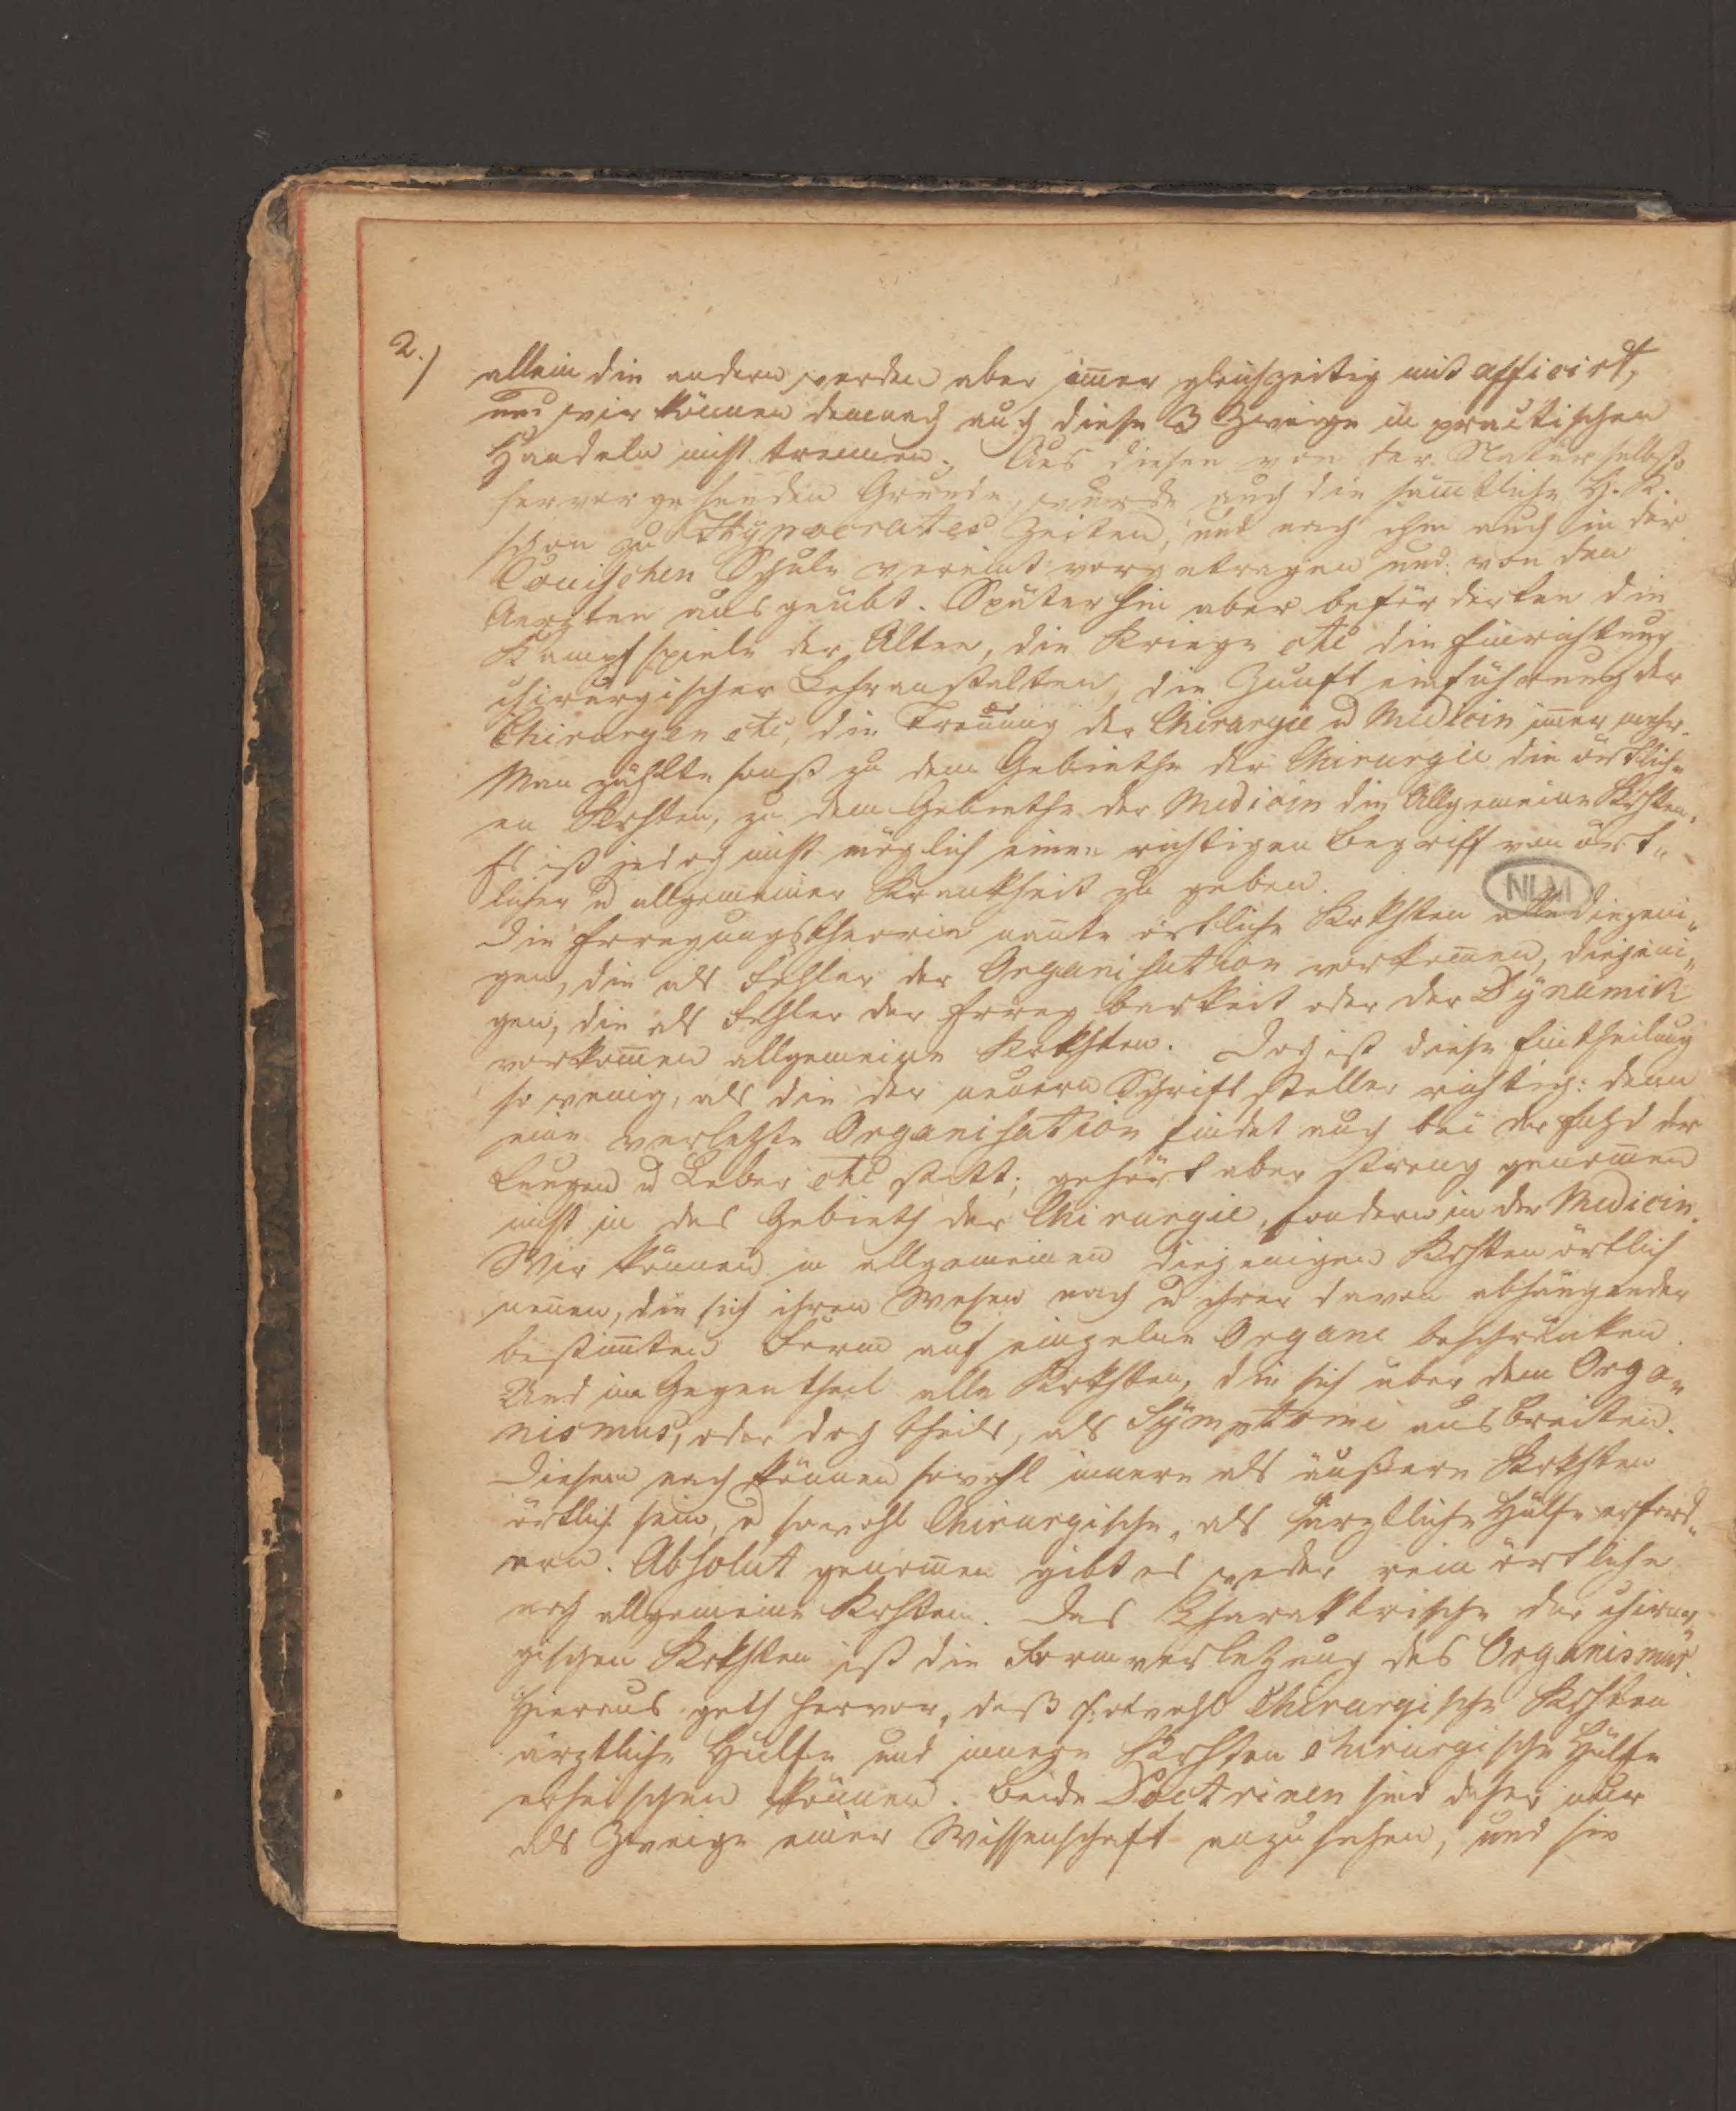 2.)
allein die andern werden aber im̄er gleichzeitig mit afficirt,
und wir können demnach auch diese 3 Zweige in practischen
Handeln nicht trennen. Aus diesen von der Natur selbst
hervorgehenden Grunde, wurde auch die sämtliche H. K.
schon zu Hypocrates Zeiten, und nach ihm auch in der
Coischen Schule vereint vorgetragen und von den
Aerzten ausgeübt. Späterhin aber beförderten die
Kampfspiele der Alten, die Kriege etc die Einrichtung
chirurgischer Lehranstalten, die Zunfteinführung der
Chirurgen etc, die Trennung der Chirurgie u Medicin im̄er mehr.
Man zählte sonst zu dem Gebiethe der Chirurgie die örtlich„
en Krhten, zu dem Gebiethe der Medicin die Allgemeine Krhten.
Es ist jedoch nicht möglich einen richtigen Begriff von ört„
licher u allgemeiner Krankheit zu geben.
NLM
Die Erregungstheorie nan̄te örtliche Krkhten alle diejeni„
gen, die als Fehler der Organisation vorkom̄en, diejeni„
gen, die als Fehler der Erregbarkeit oder der Dÿnamik
vorkom̄en allgemeine Krkhten. Doch ist diese Eintheilung
so wenig, als die der neuern Schriftsteller richtig: denn
eine verletzte Organisation findet auch bei der Entzd der
Lungen u Leber etc statt; gehört aber streng genom̄en
nicht in das Gebieth der Chirurgie, sondern in der Medicin.
Wir können im allgemeinen diejenigen Krhten örtlich
nen̄en, die sich ihren Wesen nach u ihrer davon abhängender
bestim̄ten Form auf einzelne Organe beschränken.
Und im Gegentheil alle Krkhten, die sich über dem Orga„
nismus, oder doch theils, als Sÿmptome ausbreiten.
Diesem nach können sowohl innere als äußere Krkhten
örtlich sein, u sowohl Chirurgische, als ärztliche Hülfe erford„
ern. Absolut genom̄en gibt es weder rein örtliche
noch allgemeine Krhten. Das Charaktrische der chirur„
gischen Krkhten ist die Formverletzung des Organismus.
Hieraus geth hervor, daß sowohl Chirurgische Krhten
ärztliche Hülfe und innere Krhten chirurgische Hülfe
erheischen können. Beide Doctrinen sind daher nur
als Zweige einer Wissenschaft anzusehen, und sie